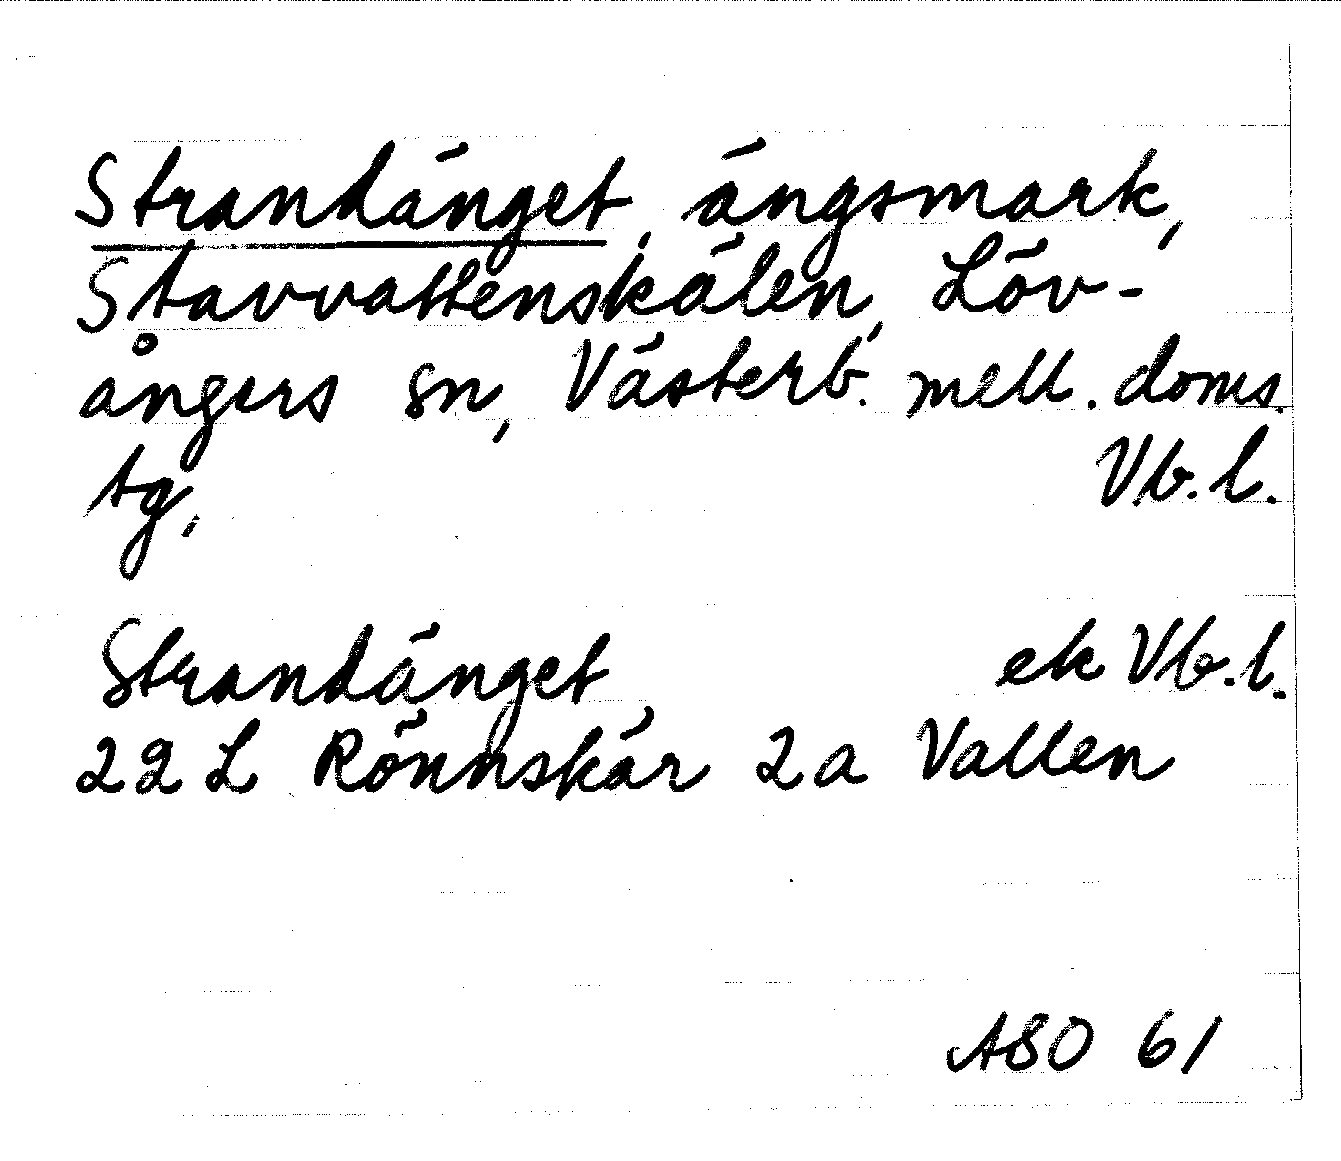 Strandänget, ängsmark,
Stavvattenskälen, Löv-
ångers sn, Västerb. mell. doms.
tg, Vb. l.
Strandänget ek Vb. l.
22 L Rönnskär 2a Vallen
ASO 61